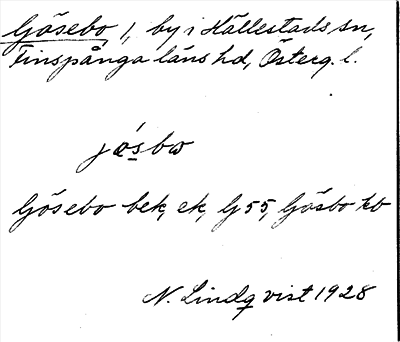 Gösebo 1, by i Hällestads sn,
Finspånga läns hd, Österg. l.
jǿsbω
Gösebo bek, ek, G 55, Gösbo kb
N. Lindqvist 1928